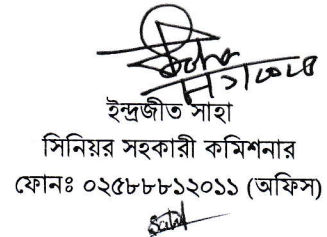 ইন্দ্রজীত সাহা
সিনিয়র সহকারী কমিশনার
ফোনঃ ০২৫৮৮৮১২০১১ (অফিস)